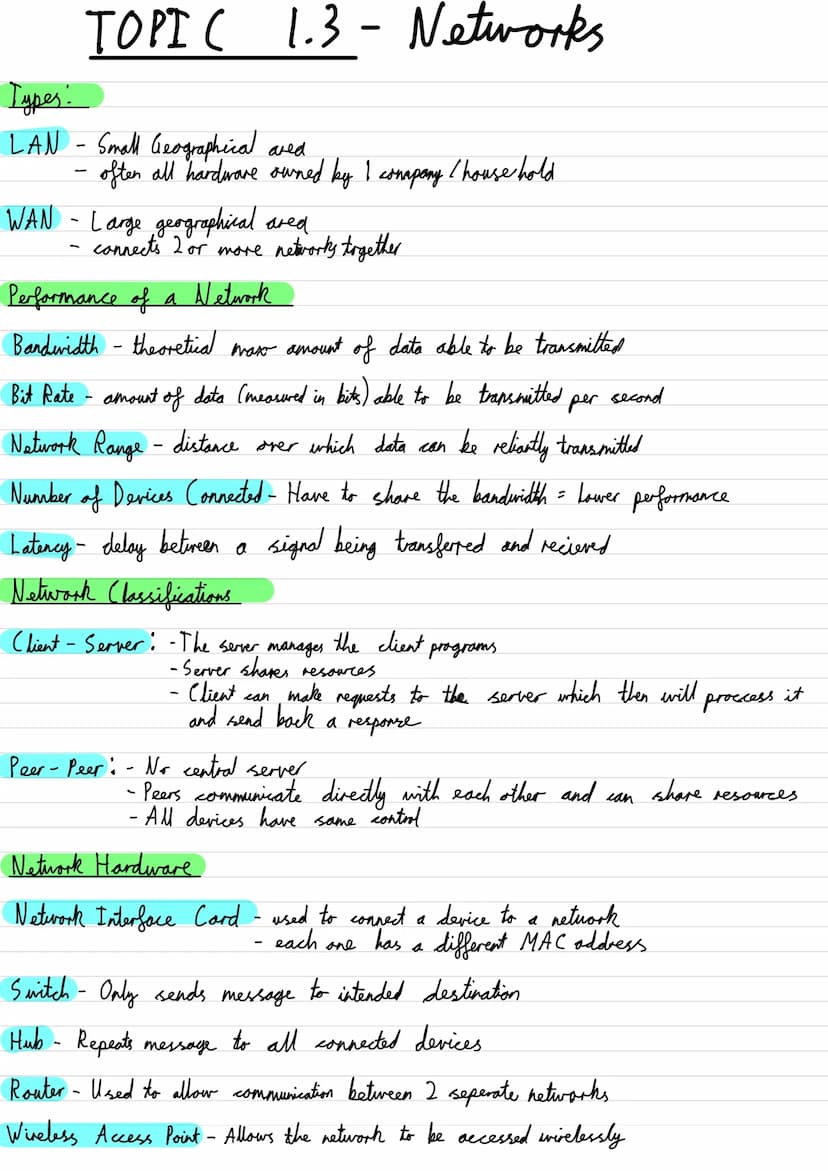 TOPIC 1.3 - Networks
Types:
LAN - Small Geographical area
- often all hardware owned by 1 conapany / household
WAN - Large geographical area
- connects 2 or more networks together
Performance of a Network
Bandwidth - theoretical max amount of data able to be transmitted
Bit Rate - amount of data (measured in bits) able to be transmitted per second
Network Range - distance over which data can be reliantly transmitted
Number of Devices Connected - Have to share the bandwidth = lower performance
Latency - delay between a signal being transferred and recieved
Network Classifications
Client - Server: - The server manages the client programs
- Server shares resources
- Client can make requests to the server which then will proccess it
and send back a response
Peer - Peer: - No central server
- Peers communicate directly with each other and can share resources
- All devices have same control
Network Hardware
Network Interface Card - used to connect a device to a network
- each one has a different MAC address
Switch - Only sends message to intended destination
Hub - Repeats message to all connected devices
Router - Used to allow communication between 2 seperate networks
Wireless Access Point - Allows the network to be accessed wirelessly